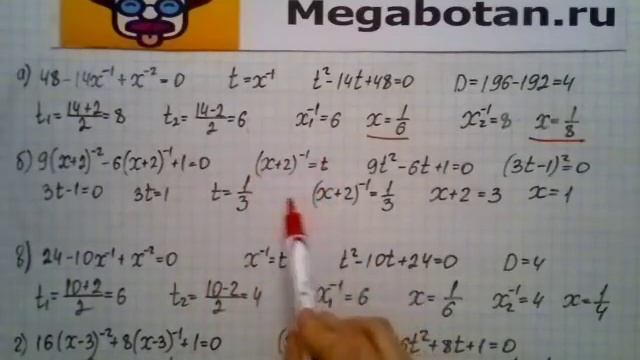 Megabotan.ru
а) 48-14x⁻¹+x⁻²=0 t=x⁻¹ t²-14t+48=0 D=196-192=4
t₁=(14+2)/2=8 t₂=(14-2)/2=6 x₁⁻¹=6 x=1/6 x₂⁻¹=8 x=1/8
б) 9(x+2)⁻²-6(x+2)⁻¹+1=0 (x+2)⁻¹=t 9t²-6t+1=0 (3t-1)²=0
3t-1=0 3t=1 t=1/3 (x+2)⁻¹=1/3 x+2=3 x=1
в) 24-10x⁻¹+x⁻²=0 x⁻¹=t t²-10t+24=0 D=4
t₁=(10+2)/2=6 t₂=(10-2)/2=4 x₁⁻¹=6 x=1/6 x₂⁻¹=4 x=1/4
г) 16(x-3)⁻²+8(x-3)⁻¹+1=0 6t²+8t+1=0